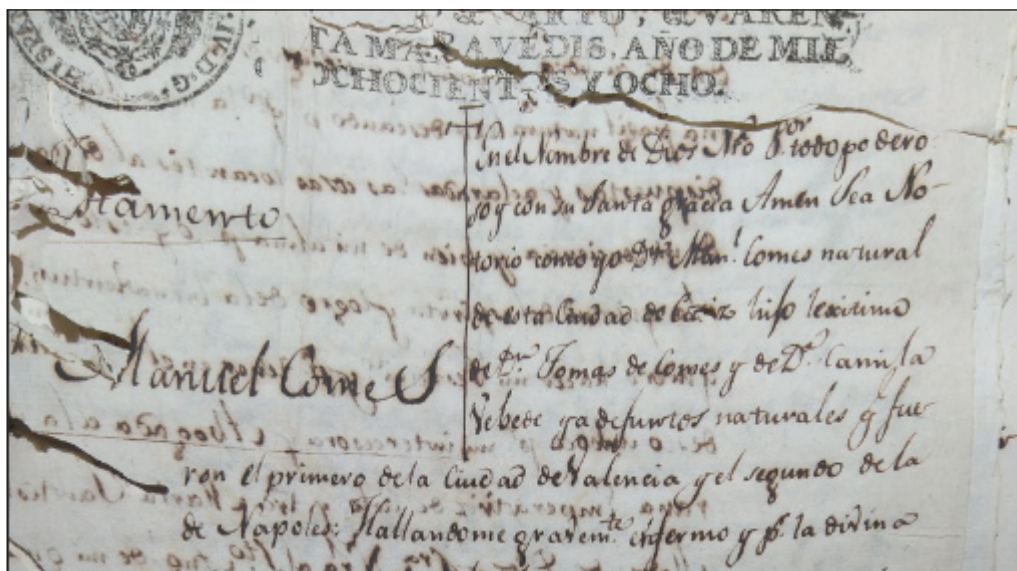 QVARTO, QVAREN
TA MARAVEDIS, AÑO DE MIL
OCHOCIENTOS Y OCHO.
Enel Nombre de Dios Ntrõ Sor. todopodero
so y con su Santa gracia Amen Sea No-
torio como yo Dn. Manl. Comes natural
de esta Ciudad de hijo lexitimo
de Dn. Tomas de Comes y de Da. Camila
ya defuntos naturales q fue
ron el primero de la Ciudad de Valencia y el segundo de la
de Napoles: Hallandome gravemte. enfermo y pr. la divina
tamento
Manuel Comes